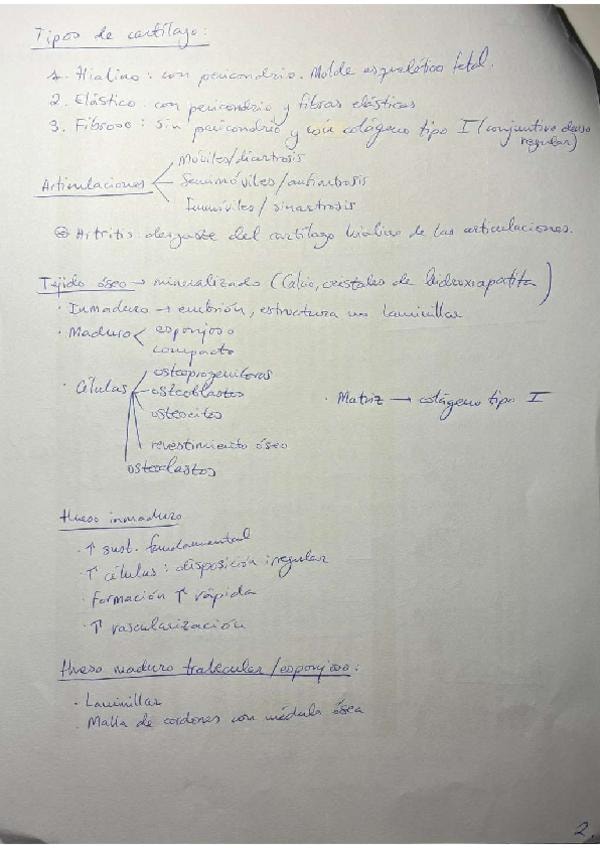 Tipos de cartílago:
1. Hialino: con pericondrio. Molde esquelético fetal.
2. Elástico: con pericondrio y fibras elásticas
3. Fibroso: sin pericondrio y con colágeno tipo I (conjuntivo denso
regular)
Articulaciones
Móviles/diartrosis
Semimóviles/anfiartrosis
Inmóviles/sinartrosis
Artritis: desgaste del cartílago hialino de las articulaciones.
Tejido óseo → mineralizado (Calcio, cristales de hidroxiapatita)
· Inmaduro → embrión, estructura no laminillar
· Maduro
esponjoso
compacto
· Células
osteoprogenitoras
osteoblastos
osteocitos
revestimiento óseo
osteoclastos
· Matriz → colágeno tipo I
Hueso inmaduro
· ↑ sust. fundamental
· ↑ células: disposición irregular
· Formación ↑ rápida
· ↑ vascularización
Hueso maduro trabecular/esponjoso:
· Laminillar
· Malla de cordones con médula ósea
2.